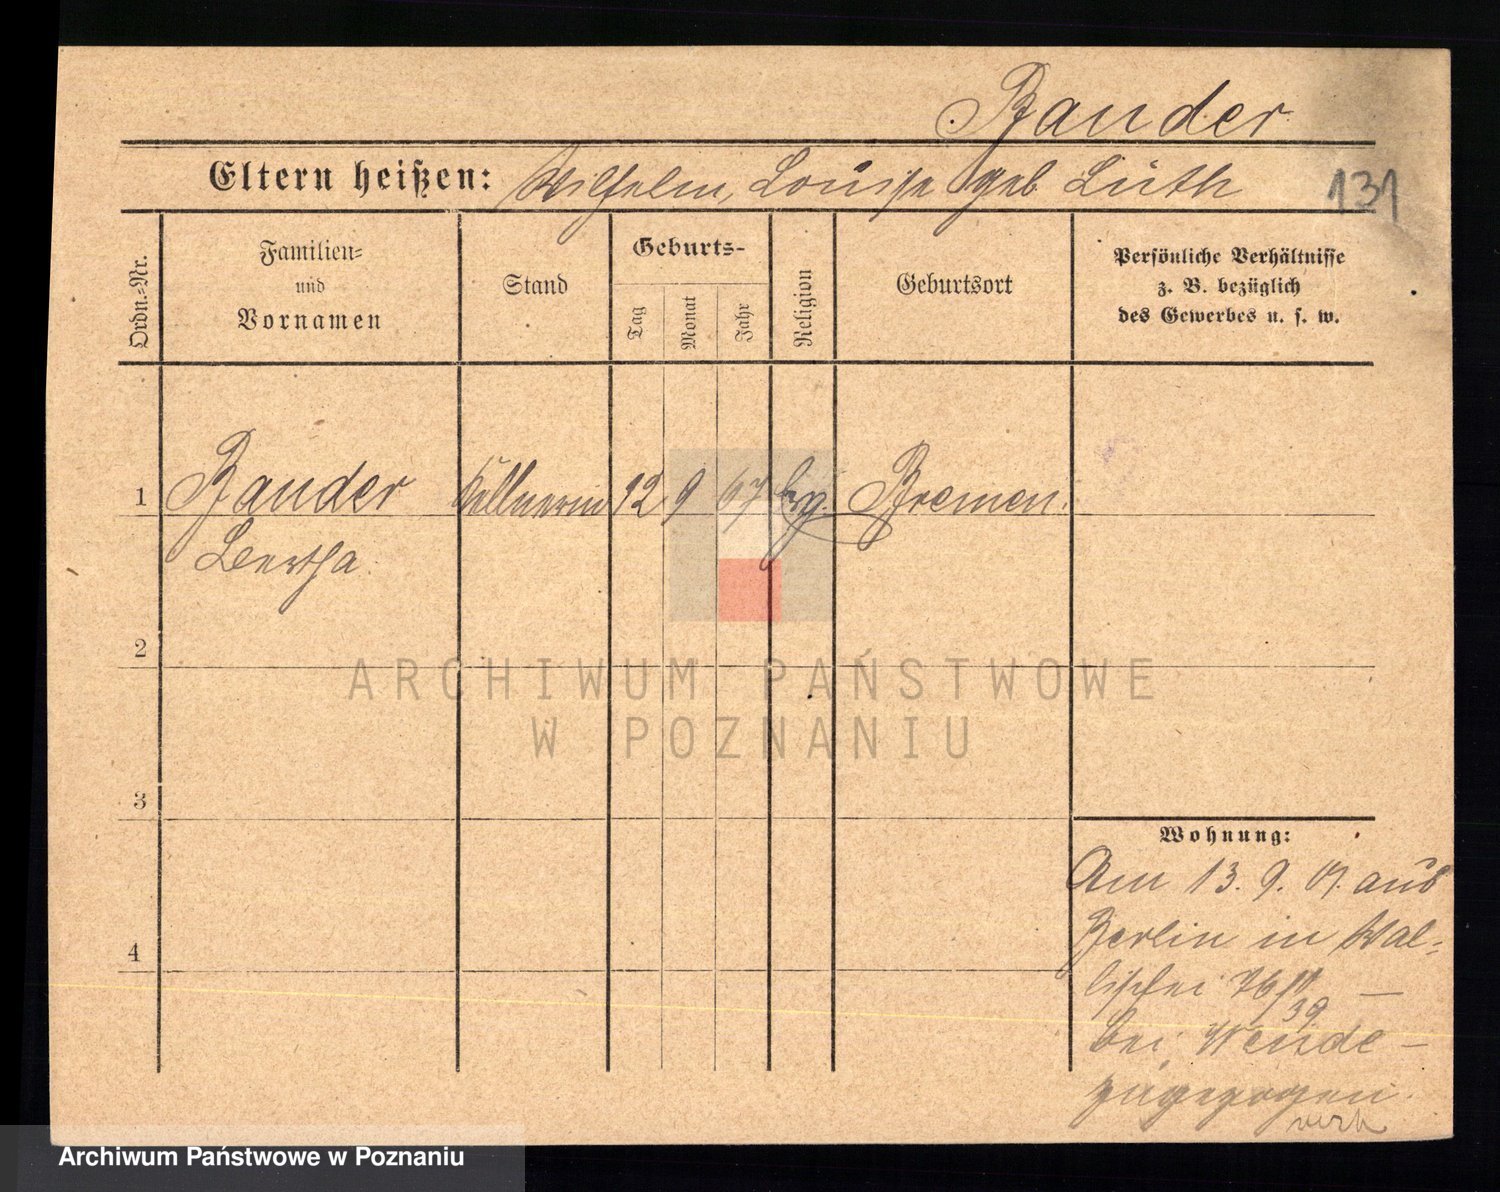 Bander
Eltern heißen: Wilhelm, Louise geb Lüth
131
Ordn.-Nr.
Familien-
und
Vornamen
Stand
Geburts-
Tag
Monat
Jahr
Religion
Geburtsort
Persönliche Verhältnisse
z. B. bezüglich
des Gewerbes u. s. w.
1 Bander Kellnerin 12 9 67 evg. Bremen.
Bertha.
2
ARCHIWUM PAŃSTWOWE
W POZNANIU
3
Wohnung:
Am 13. 9. 07. aus
Berlin in Wal-
4
lischei 76/II
39
bei Wende
zugezogen.
Archiwum Państwowe w Poznaniu